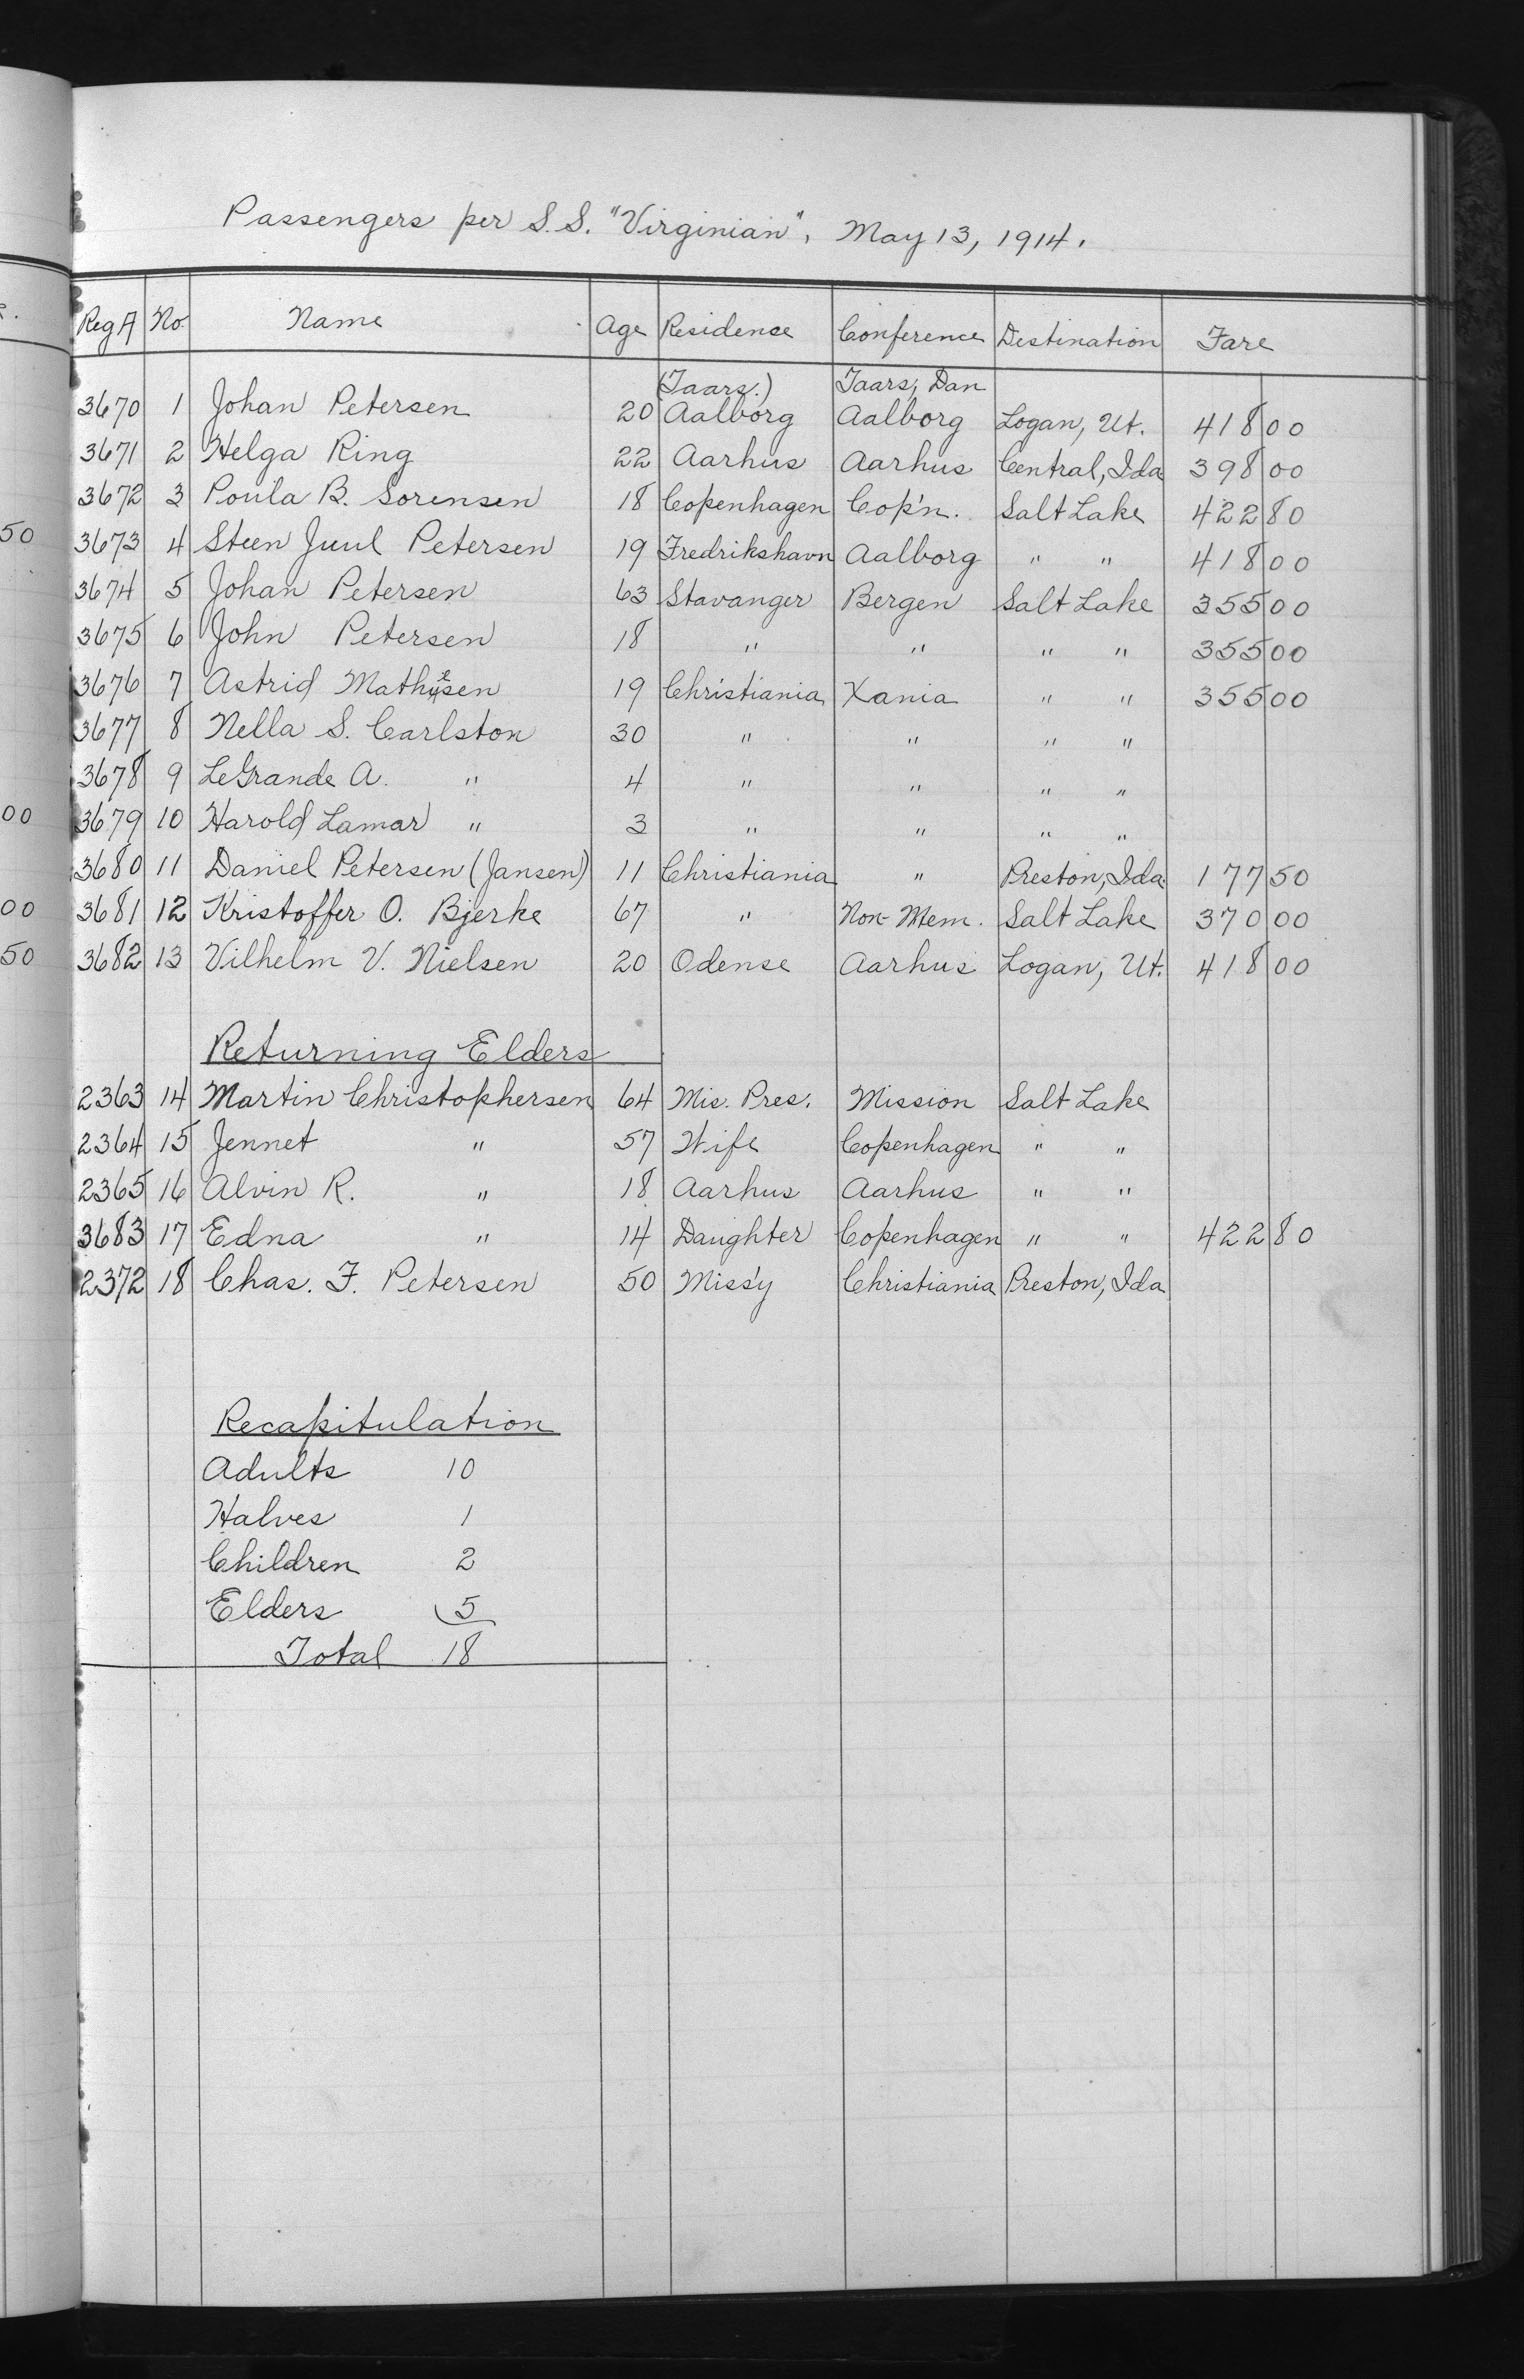 Passengers per S.S. "Virginian", May 13, 1914.
Reg A No. Name Age Residence Conference Destination Fare
(Taars.) Taars, Dan
3670 1 Johan Petersen 20 Aalborg Aalborg Logan, Ut. 418 00
3671 2 Helga Ring 22 Aarhus Aarhus Central, Ida 398 00
3672 3 Poula B. Sorensen 18 Copenhagen Cop'n. Salt Lake 422 80
50
3673 4 Steen Juul Petersen 19 Fredrikshavn Aalborg " " 418 00
3674 5 Johan Petersen 63 Stavanger Bergen Salt Lake 355 00
3675 6 John Petersen 18 " " " " 355 00
3676 7 Astrid Mathisen 19 Christiania Xania " " 355 00
3677 8 Nella S. Carlston 30 " " " "
3678 9 LeGrande A. " 4 " " " "
00
3679 10 Harold Lamar " 3 " " " "
3680 11 Daniel Petersen (Jansen) 11 Christiania " Preston, Ida. 177 50
00
3681 12 Kristoffer O. Bjerke 67 " Non-Mem. Salt Lake 370 00
50
3682 13 Vilhelm V. Nielsen 20 Odense Aarhus Logan, Ut. 418 00
Returning Elders
2363 14 Martin Christophersen 64 Mis. Pres. Mission Salt Lake
2364 15 Jennet " 57 Wife Copenhagen " "
2365 16 Alvin R. " 18 Aarhus Aarhus " "
3683 17 Edna " 14 Daughter Copenhagen " " 422 80
2372 18 Chas. F. Petersen 50 Miss'y Christiania Preston, Ida
Recapitulation
Adults 10
Halves 1
Children 2
Elders 5
Total 18